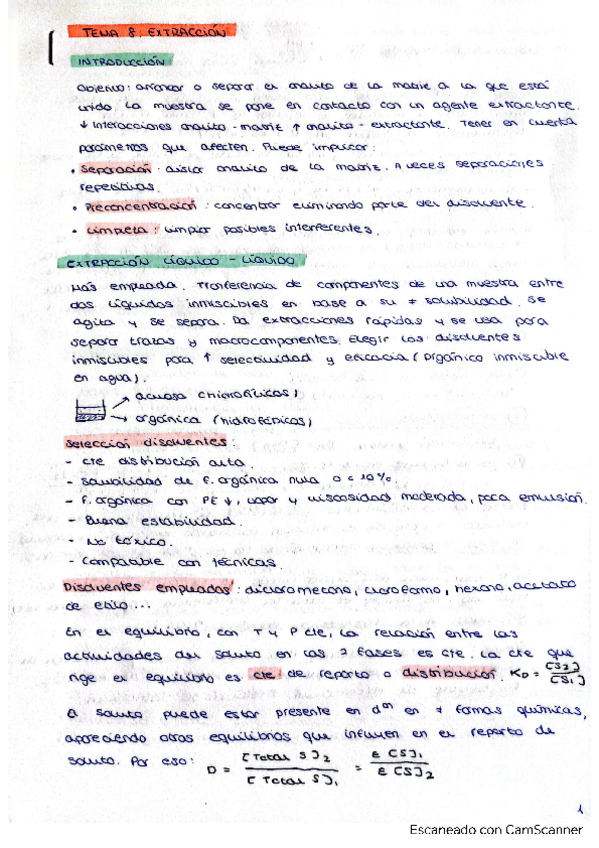 TEMA 8. EXTRACCIÓN
INTRODUCCIÓN
Objetivo: arrancar o separar el analito de la matriz a la que está
unido. La muestra se pone en contacto con un agente extractante.
↓ Interacciones analito - matriz ↑ analito - extractante. Tener en cuenta
parámetros que afecten. Puede implicar:
• Separación: aislar analito de la matriz. A veces separaciones
repetitivas.
• Preconcentración: concentrar eliminando parte del disolvente.
• Limpieza: limpiar posibles interferentes.
EXTRACCIÓN LÍQUIDO - LÍQUIDO
Más empleada. Transferencia de componentes de una muestra entre
dos líquidos inmiscibles en base a su ≠ solubilidad. Se
agita y se separa. Da extracciones rápidas y se usa para
separar trazas y macrocomponentes. Elegir los disolventes
inmiscibles para ↑ selectividad y eficacia (orgánico inmiscible
en agua).
→ acuosa (hidrofílicos)
→ orgánica (hidrofóbicos)
Selección disolventes:
- cte distribución alta.
- Solubilidad de f. orgánica nula o < 10%
- F. orgánica con PE ↓, vapor y viscosidad moderada, poca emulsión.
- Buena estabilidad.
- No tóxico.
- Compatible con técnicas.
Disolventes empleados: diclorometano, cloroformo, hexano, acetato
de etilo...
En el equilibrio, con T y P cte, la relación entre las
actividades del soluto en las 2 fases es cte. La cte que
rige el equilibrio es cte de reparto o distribución. KD = [S2] / [S1]
A soluto puede estar presente en dºn en ≠ formas químicas,
apareciendo otros equilibrios que influyen en el reparto de
soluto. Por eso: D = [Total S]2 / [Total S]1 = ε [S]1 / ε [S]2
1
Escaneado con CamScanner